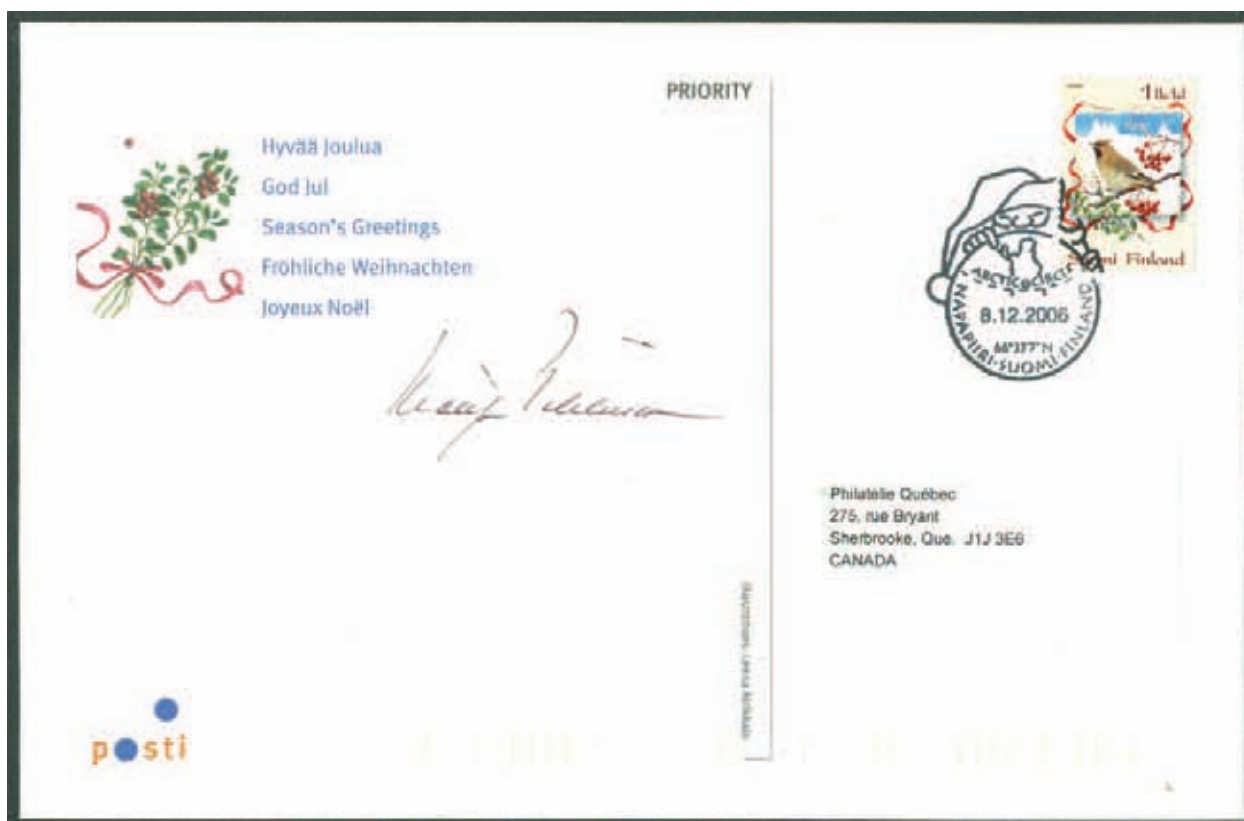 PRIORITY
Hyvää Joulua
God Jul
Season's Greetings
Fröhliche Weihnachten
Joyeux Noël
1 lk/kl
Suomi Finland
ARCTIC CIRCLE
8.12.2006
NAPAPIIRI·SUOMI·FINLAND
Philatélie Québec
275, rue Bryant
Sherbrooke, Que. J1J 3E6
CANADA
posti